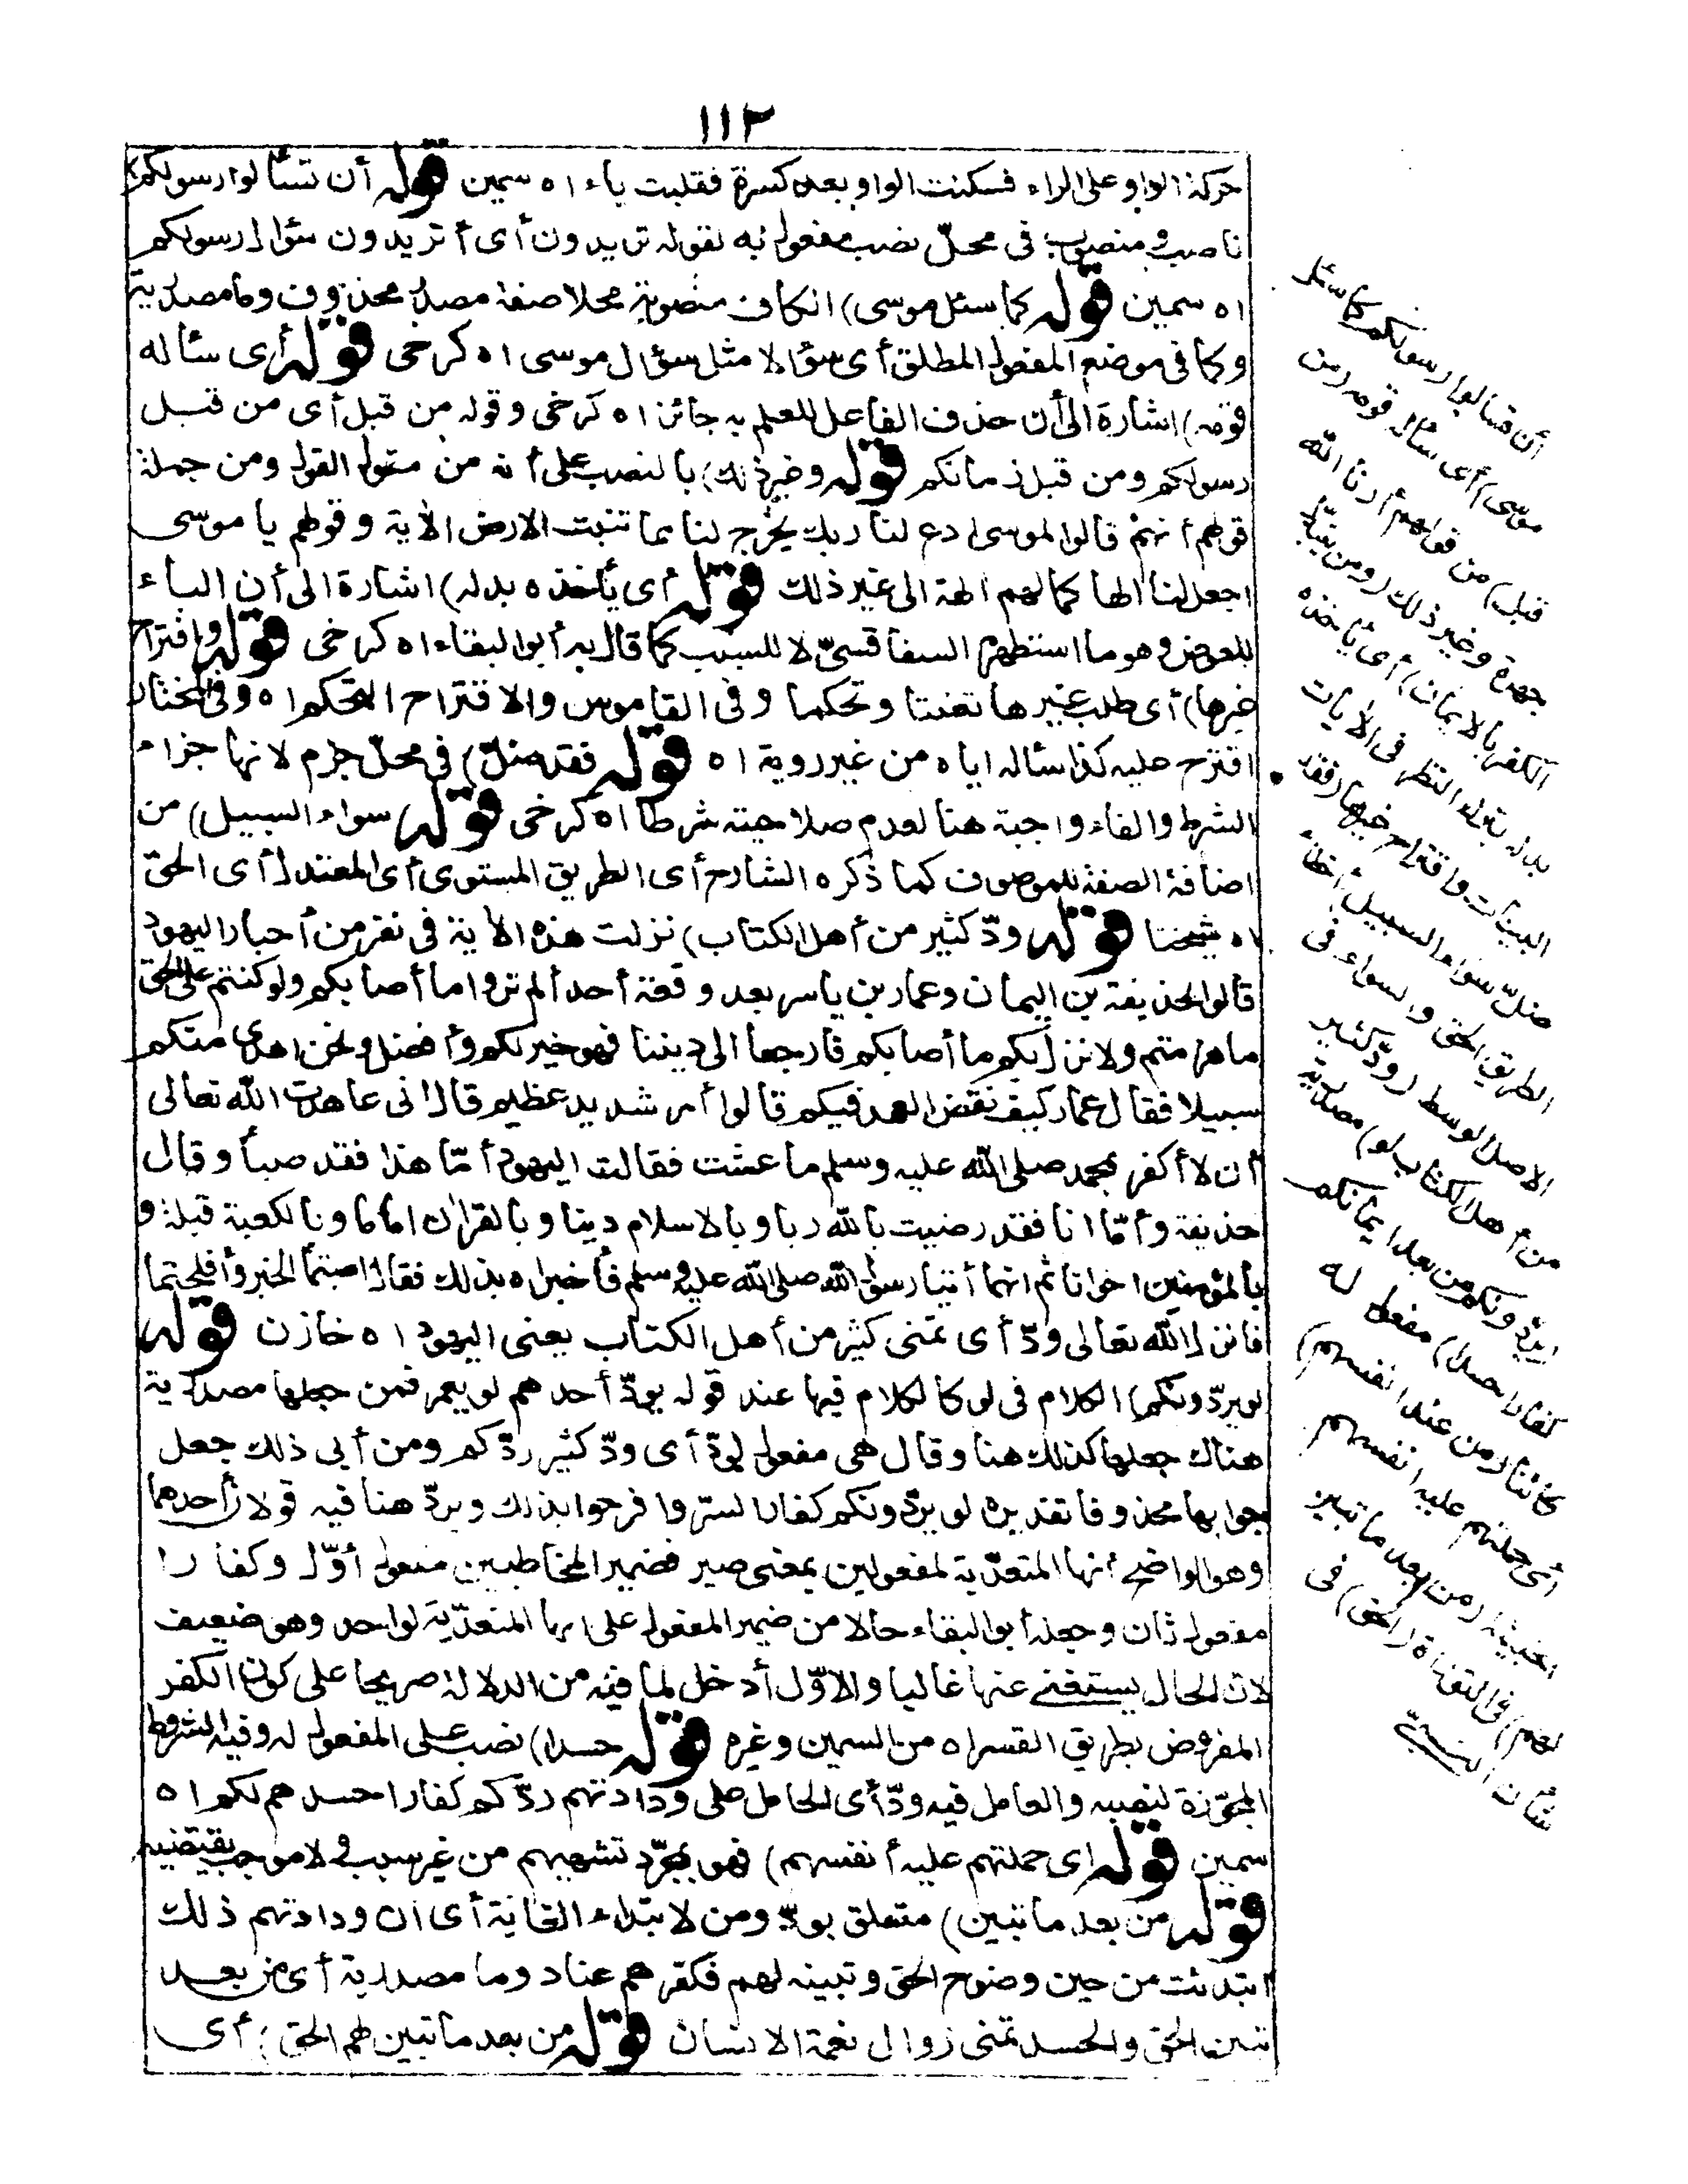 ١١٢
حركة الواو على الراء فسكنت الواو بعد كسرة فقلبت ياء اه سمين قوله أن تسألوا رسولكم)
ناصب ومنصوب في محلّ نصب مفعول به لقوله تريدون أى أتريدون سؤال رسولكم
اه سمين قوله كما سئل موسى) الكاف منصوبة محلا صفة مصدر محذوف وما مصدرية
وكما في موضع المفعول المطلق أى سؤالا مثل سؤال موسى اه كرخى قوله أى سأله
قومه) اشارة الى أن حذف الفاعل للعلم به جائز اه كرخى وقوله من قبل أى من قبل
رسولكم ومن قبل زمانكم قوله وغير ذلك) بالنصب على أنه من مقول القول ومن جملة
قولهم أنهم قالوا لموسى ادع لنا ربك يخرج لنا مما تنبت الارض الآية وقولهم يا موسى
اجعل لنا الها كما لهم الهة الى غير ذلك قوله أى يأخذه بدله) اشارة الى أن الباء
للعوض وهو ما استظهره السفاقسىّ لا للسبب كما قال به أبو البقاء اه كرخى قوله واقتراح
غيرها) أى طلب غيرها تعنتا وتحكما وفى القاموس والاقتراح التحكم اه وفى المختار
اقترح عليه كذا سأله اياه من غير روية اه قوله فقد ضلّ) في محلّ جزم لانها جزاء
الشرط والفاء واجبة هنا لعدم صلاحيته شرطا اه كرخى قوله سواء السبيل) من
اضافة الصفة للموصوف كما ذكره الشارح أى الطريق المستوى أى المعتدل أى الحق
اه شيخنا قوله ودّ كثير من أهل الكتاب) نزلت هذه الآية فى نفر من أحبار اليهود
قالوا لحذيفة بن اليمان وعمار بن ياسر بعد وقعة أحد ألم تروا ما أصابكم ولو كنتم على الحق
ما هزمتم ولا نزل بكم ما أصابكم فارجعا الى ديننا فهو خير لكم وأفضل ونحن اهدى منكم
سبيلا فقال عمار كيف نقض العهد فيكم قالوا أمر شديد عظيم قال انى عاهدت الله تعالى
أن لا أكفر بمحمد صلى الله عليه وسلم ما عشت فقالت اليهود أمّا هذا فقد صبأ وقال
حذيفة وأمّا انا فقد رضيت بالله ربا وبالاسلام دينا وبالقران اماما وبالكعبة قبلة و
بالمؤمنين اخوانا ثم انهما أتيا رسول الله صلى الله عليه وسلم فأخبراه بذلك فقال اصبتما الخير وأفلحتما
فانزل الله تعالى ودّ أى تمنى كثير من أهل الكتاب يعنى اليهود اه خازن قوله
لو يردّونكم) الكلام فى لو كالكلام فيها عند قوله يودّ أحدهم لو يعمر فمن جعلها مصدرية
هناك جعلها كذلك هنا وقال هى مفعول ليودّ أى ودّ كثير ردّكم ومن أبى ذلك جعل
جوابها محذوفا تقديره لو يردّونكم كفارا لسرّوا وفرحوا بذلك ويردّ هنا فيه قولان أحدهما
وهو الواضح أنها المتعدّية لمفعولين بمعنى صير فضمير المخاطبين مفعول أوّل وكفارا
مفعول ثان وجعله أبو البقاء حالا من ضمير المفعول على انها المتعدّية لواحد وهو ضعيف
لان الحال يستغنى عنها غاليا والاوّل أدخل لما فيه من الدلالة صريحا على كون الكفر
المفروض بطريق القسر اه من السمين وغيره قوله حسدا) نصب على المفعول له وفيه الشروط
المجوّزة لنصبه والعامل فيه ودّ أى الحامل على ودادتهم ردّكم كفارا حسدهم لكم اه
سمين قوله أى حملتهم عليه أنفسهم) فهو بمجرّد تشهيهم من غير سبب ولا موجب يقتضيه
قوله من بعد ما تبين) متعلق بودّ ومن لابتداء الغاية أى ان ودادتهم ذلك
ابتدئت من حين وضوح الحق وتبينه لهم فكفرهم عناد وما مصدرية أى من بعد
تبين الحق والحسد تمنى زوال نعمة الانسان قوله من بعد ما تبين لهم الحق) أى
أن تسألوا رسولكم كما سئل
موسى) أى سأله قومه (من
قبل) من قولهم أرنا الله
جهرة وغير ذلك (ومن يتبدّل
الكفر بالايمان) أى يأخذه
بدله بترك النظر فى الآيات
البينات واقتراح غيرها (فقد
ضلّ سواء السبيل) أخطأ
الطريق الحق والسواء فى
الاصل الوسط (ودّ كثير
من أهل الكتاب لو) مصدرية
(يردّونكم من بعد ايمانكم
كفارا حسدا) مفعول له
كائنا (من عند أنفسهم)
أى حملتهم عليه انفسهم
الخبيثة (من بعد ما تبين
لهم) فى التوراة (الحق) فى
شأن النبىّ